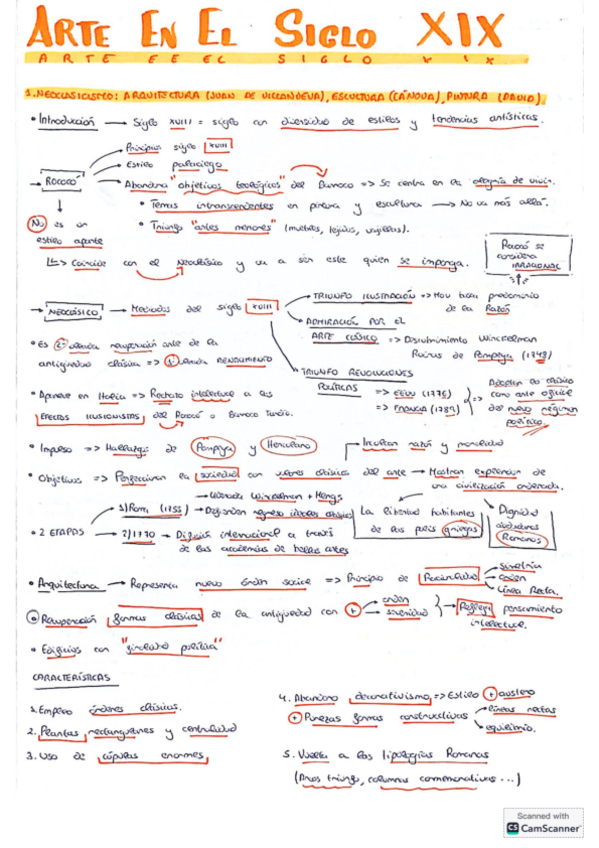 ARTE EN EL SIGLO XIX
ARTE EE EL SIGLO XIX
1. NEOCLASICISMO: ARQUITECTURA (JUAN DE VILLANUEVA), ESCULTURA (CÁNOVA), PINTURA (DAVID).
• Introducción → Siglo XVIII = siglo con diversidad de estilos y tendencias artísticas.
→ ROCOCÓ → Principios siglo XVIII
→ Estilo palaciego
→ Abandona "objetivos teológicos" del Barroco => Se centra en la alegría de vivir.
• Temas intranscendentes en pintura y escultura → No va más allá.
No es un estilo aparte
• Triunfo "artes menores" (muebles, tejidos, vajillas).
↳ Coincide con el Neoclásico y va a ser este quien se imponga.
Rococó se considera IRRACIONAL
→ NEOCLÁSICO → Mediados del siglo XVIII
→ TRIUNFO ILUSTRACIÓN => Hay predominio de la Razón
→ ADMIRACIÓN POR EL ARTE CLÁSICO => Descubrimiento Winckelman Ruinas de Pompeya (1748)
→ TRIUNFO REVOLUCIONES POLÍTICAS => EEUU (1776)
=> FRANCIA (1789)
=> Adoptan lo clásico como arte oficial del nuevo régimen político.
• Es 2ª recuperación arte de la antigüedad clásica => 1ª RENACIMIENTO
• Aparece en Italia => Rechazo intelectual a los EFECTOS ILUSIONISTAS del Rococó o Barroco Tardío.
• Impulso => Hallazgos de Pompeya y Herculano
→ Inculcan razón y moralidad
• Objetivos => Perfeccionar la sociedad con valores clásicos del arte → Muestran expresión de una civilización ordenada.
La libertad habitantes de las polis griegas
Dignidad ciudadanos Romanos
• 2 ETAPAS → 1/Roma (1755) → Winckelman + Mengs
→ Defienden regreso ideales clásicos
→ 2/1770 → Difusión internacional a través de las academias de bellas artes
• Arquitectura → Representa nuevo orden social => Principio de Racionalidad → simetría
→ orden
→ Línea Recta.
Recuperación formas clásicas de la antigüedad con + → orden
→ sinceridad
→ Refleja pensamiento intelectual.
• Edificios con "finalidad política"
CARACTERÍSTICAS
1. Empleo órdenes clásicos.
2. Plantas rectangulares y centralidad
3. Uso de cúpulas enormes
4. Abandono decorativismo => Estilo + austero
+ Pureza formas constructivas → líneas rectas
→ equilibrio.
5. Vuelta a las tipologías Romanas
(Arcos triunfo, columnas conmemorativas ...)
Scanned with
CS CamScanner